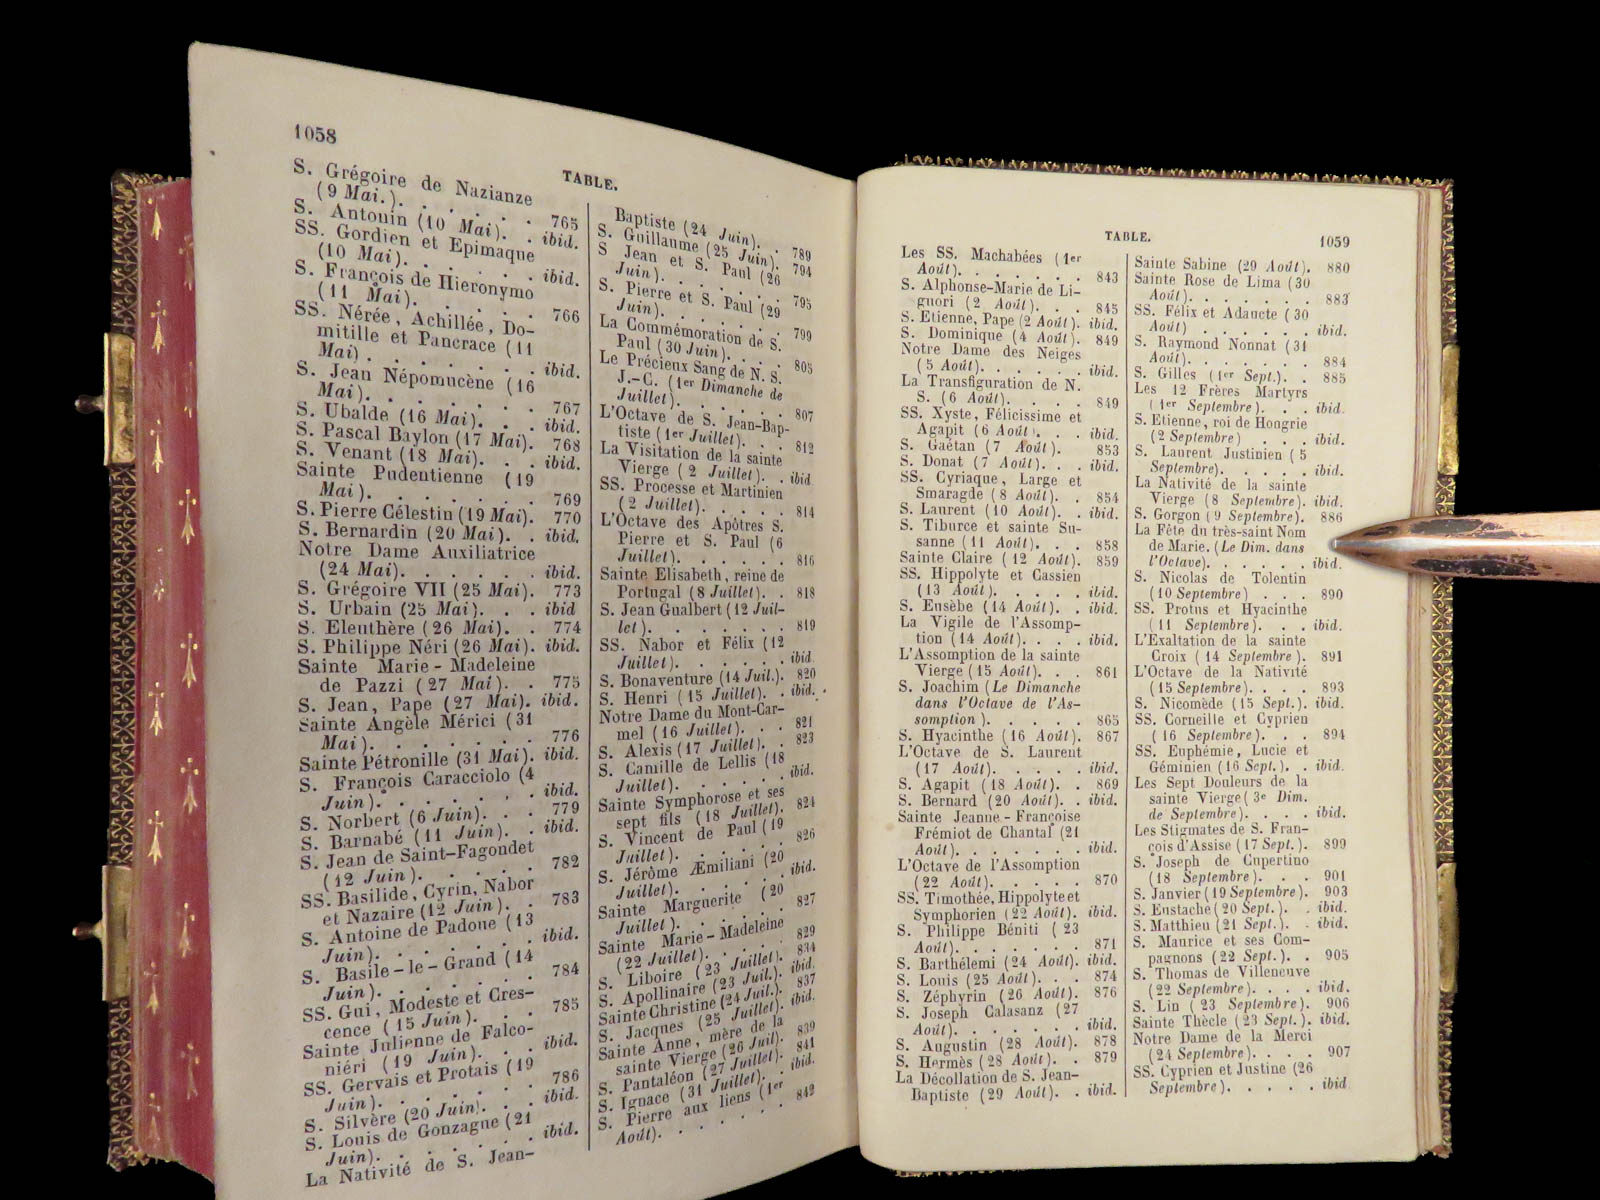 1058
TABLE.
S. Grégoire de Nazianze
(9 Mai.). . . . . . 765
S. Antonin (10 Mai). . ibid.
SS. Gordien et Epimaque
(10 Mai). . . . . . ibid.
S. François de Hieronymo
(11 Mai). . . . . . 766
SS. Nérée, Achillée, Do-
mitille et Pancrace (11
Mai) . . . . . . . ibid.
S. Jean Népomucène (16
Mai). . . . . . . . 767
S. Ubalde (16 Mai). . . ibid.
S. Pascal Baylon (17 Mai). 768
S. Venant (18 Mai). . . ibid.
Sainte Pudentienne (19
Mai). . . . . . . . 769
S. Pierre Célestin (19 Mai). 770
S. Bernardin (20 Mai). . ibid.
Notre Dame Auxiliatrice
(24 Mai). . . . . . ibid.
S. Grégoire VII (25 Mai). 773
S. Urbain (25 Mai). . . ibid
S. Eleuthère (26 Mai). . 774
S. Philippe Néri (26 Mai). ibid.
Sainte Marie-Madeleine
de Pazzi (27 Mai). . 775
S. Jean, Pape (27 Mai). ibid.
Sainte Angèle Mérici (31
Mai). . . . . . . . 776
Sainte Pétronille (31 Mai). ibid.
S. François Caracciolo (4
Juin). . . . . . . ibid.
S. Norbert (6 Juin). . . 779
S. Barnabé (11 Juin). . ibid.
S. Jean de Saint-Fagondet
(12 Juin). . . . . . 782
SS. Basilide, Cyrin, Nabor
et Nazaire (12 Juin). . 783
S. Antoine de Padoue (13
Juin). . . . . . . ibid.
S. Basile-le-Grand (14
Juin). . . . . . . 784
SS. Gui, Modeste et Cres-
cence (15 Juin). . . 785
Sainte Julienne de Falco-
niéri (19 Juin). . . ibid.
SS. Gervais et Protais (19
Juin). . . . . . . 786
S. Silvère (20 Juin). . . ibid.
S. Louis de Gonzague (21
Juin). . . . . . . ibid.
La Nativité de S. Jean-
Baptiste (24 Juin). . 789
S. Guillaume (25 Juin). 794
S Jean et S. Paul (26
Juin). . . . . . . 795
S. Pierre et S. Paul (29
Juin). . . . . . . 799
La Commémoration de S.
Paul (30 Juin). . . . 805
Le Précieux Sang de N. S.
J.-C. (1er Dimanche de
Juillet). . . . . . 807
L'Octave de S. Jean-Bap-
tiste (1er Juillet). . . 812
La Visitation de la sainte
Vierge (2 Juillet). . ibid
SS. Processe et Martinien
(2 Juillet). . . . . 814
L'Octave des Apôtres S.
Pierre et S. Paul (6
Juillet). . . . . . 816
Sainte Elisabeth, reine de
Portugal (8 Juillet). . 818
S. Jean Gualbert (12 Juil-
let). . . . . . . . 819
SS. Nabor et Félix (12
Juillet). . . . . . ibid.
S. Bonaventure (14 Juil.). 820
S. Henri (15 Juillet). . ibid.
Notre Dame du Mont-Car-
mel (16 Juillet). . . 821
S. Alexis (17 Juillet). . 823
S. Camille de Lellis (18
Juillet). . . . . . ibid.
Sainte Symphorose et ses
sept fils (18 Juillet). 824
S. Vincent de Paul (19
Juillet). . . . . . 826
S. Jérôme Æmiliani (20
Juillet). . . . . . ibid.
Sainte Marguerite (20
Juillet). . . . . . 827
Sainte Marie-Madeleine
(22 Juillet). . . . . 829
S. Liboire (23 Juillet). 834
S. Apollinaire (23 Juil.). ibid.
Sainte Christine (24 Juil.). 837
S. Jacques (25 Juillet). ibid.
Sainte Anne, mère de la
sainte Vierge (26 Juil). 839
S. Pantaléon (27 Juillet). 841
S. Ignace (31 Juillet). . ibid.
S. Pierre aux liens (1er
Août). . . . . . . 842
TABLE.
1059
Les SS. Machabées (1er
Août). . . . . . . 843
S. Alphonse-Marie de Li-
guori (2 Août). . . 845
S. Etienne, Pape (2 Août). ibid.
S. Dominique (4 Août). 849
Notre Dame des Neiges
(5 Août). . . . . . ibid.
La Transfiguration de N.
S. (6 Août). . . . . 849
SS. Xyste, Félicissime et
Agapit (6 Août). . . ibid.
S. Gaëtan (7 Août). 853
S. Donat (7 Août). . . ibid.
SS. Cyriaque, Large et
Smaragde (8 Août). . 854
S. Laurent (10 Août). . ibid.
S. Tiburce et sainte Su-
sanne (11 Août). . . 858
Sainte Claire (12 Août). 859
SS. Hippolyte et Cassien
(13 Août). . . . . ibid.
S. Eusèbe (14 Août). . ibid.
La Vigile de l'Assomp-
tion (14 Août). . . . ibid.
L'Assomption de la sainte
Vierge (15 Août). . . 861
S. Joachim (Le Dimanche
dans l'Octave de l'As-
somption). . . . . 865
S. Hyacinthe (16 Août). 867
L'Octave de S. Laurent
(17 Août). . . . . ibid.
S. Agapit (18 Août). . 869
S. Bernard (20 Août). . ibid.
Sainte Jeanne-Françoise
Frémiot de Chantal (21
Août). . . . . . . ibid.
L'Octave de l'Assomption
(22 Août). . . . . 870
SS. Timothée, Hippolyte et
Symphorien (22 Août). ibid.
S. Philippe Béniti (23
Août). . . . . . . 871
S. Barthélemi (24 Août). ibid.
S. Louis (25 Août). . . 874
S. Zéphyrin (26 Août). 876
S. Joseph Calasanz (27
Août). . . . . . . ibid.
S. Augustin (28 Août). 878
S. Hermès (28 Août). . 879
La Décollation de S. Jean-
Baptiste (29 Août). . ibid.
Sainte Sabine (29 Août). 880
Sainte Rose de Lima (30
Août). . . . . . . 883
SS. Félix et Adaucte (30
Août) . . . . . . ibid.
S. Raymond Nonnat (31
Août). . . . . . . 884
S. Gilles (1er Sept.). . 885
Les 12 Frères Martyrs
(1er Septembre). . . ibid.
S. Etienne, roi de Hongrie
(2 Septembre) . . . ibid.
S. Laurent Justinien (5
Septembre). . . . . ibid.
La Nativité de la sainte
Vierge (8 Septembre). ibid.
S. Gorgon (9 Septembre). 886
La Fête du très-saint Nom
de Marie. (Le Dim. dans
l'Octave). . . . . . ibid.
S. Nicolas de Tolentin
(10 Septembre) . . . 890
SS. Protus et Hyacinthe
(11 Septembre). . . ibid.
L'Exaltation de la sainte
Croix (14 Septembre). 891
L'Octave de la Nativité
(15 Septembre). . . . 893
S. Nicomède (15 Sept). ibid.
SS. Corneille et Cyprien
(16 Septembre). . . 894
SS. Euphémie, Lucie et
Géminien (16 Sept.). . ibid.
Les Sept Douleurs de la
sainte Vierge (3e Dim.
de Septembre). . . . ibid.
Les Stigmates de S. Fran-
çois d'Assise (17 Sept.). 899
S. Joseph de Cupertino
(18 Septembre). . . 901
S. Janvier (19 Septembre). 903
S. Eustache (20 Sept.). . ibid.
S. Matthieu (21 Sept.). . ibid.
S. Maurice et ses Com-
pagnons (22 Sept.). . 905
S. Thomas de Villeneuve
(22 Septembre). . . . ibid.
S. Lin (23 Septembre). 906
Sainte Thècle (23 Sept.). ibid.
Notre Dame de la Merci
(24 Septembre). . . . 907
SS. Cyprien et Justine (26
Septembre). . . . . ibid